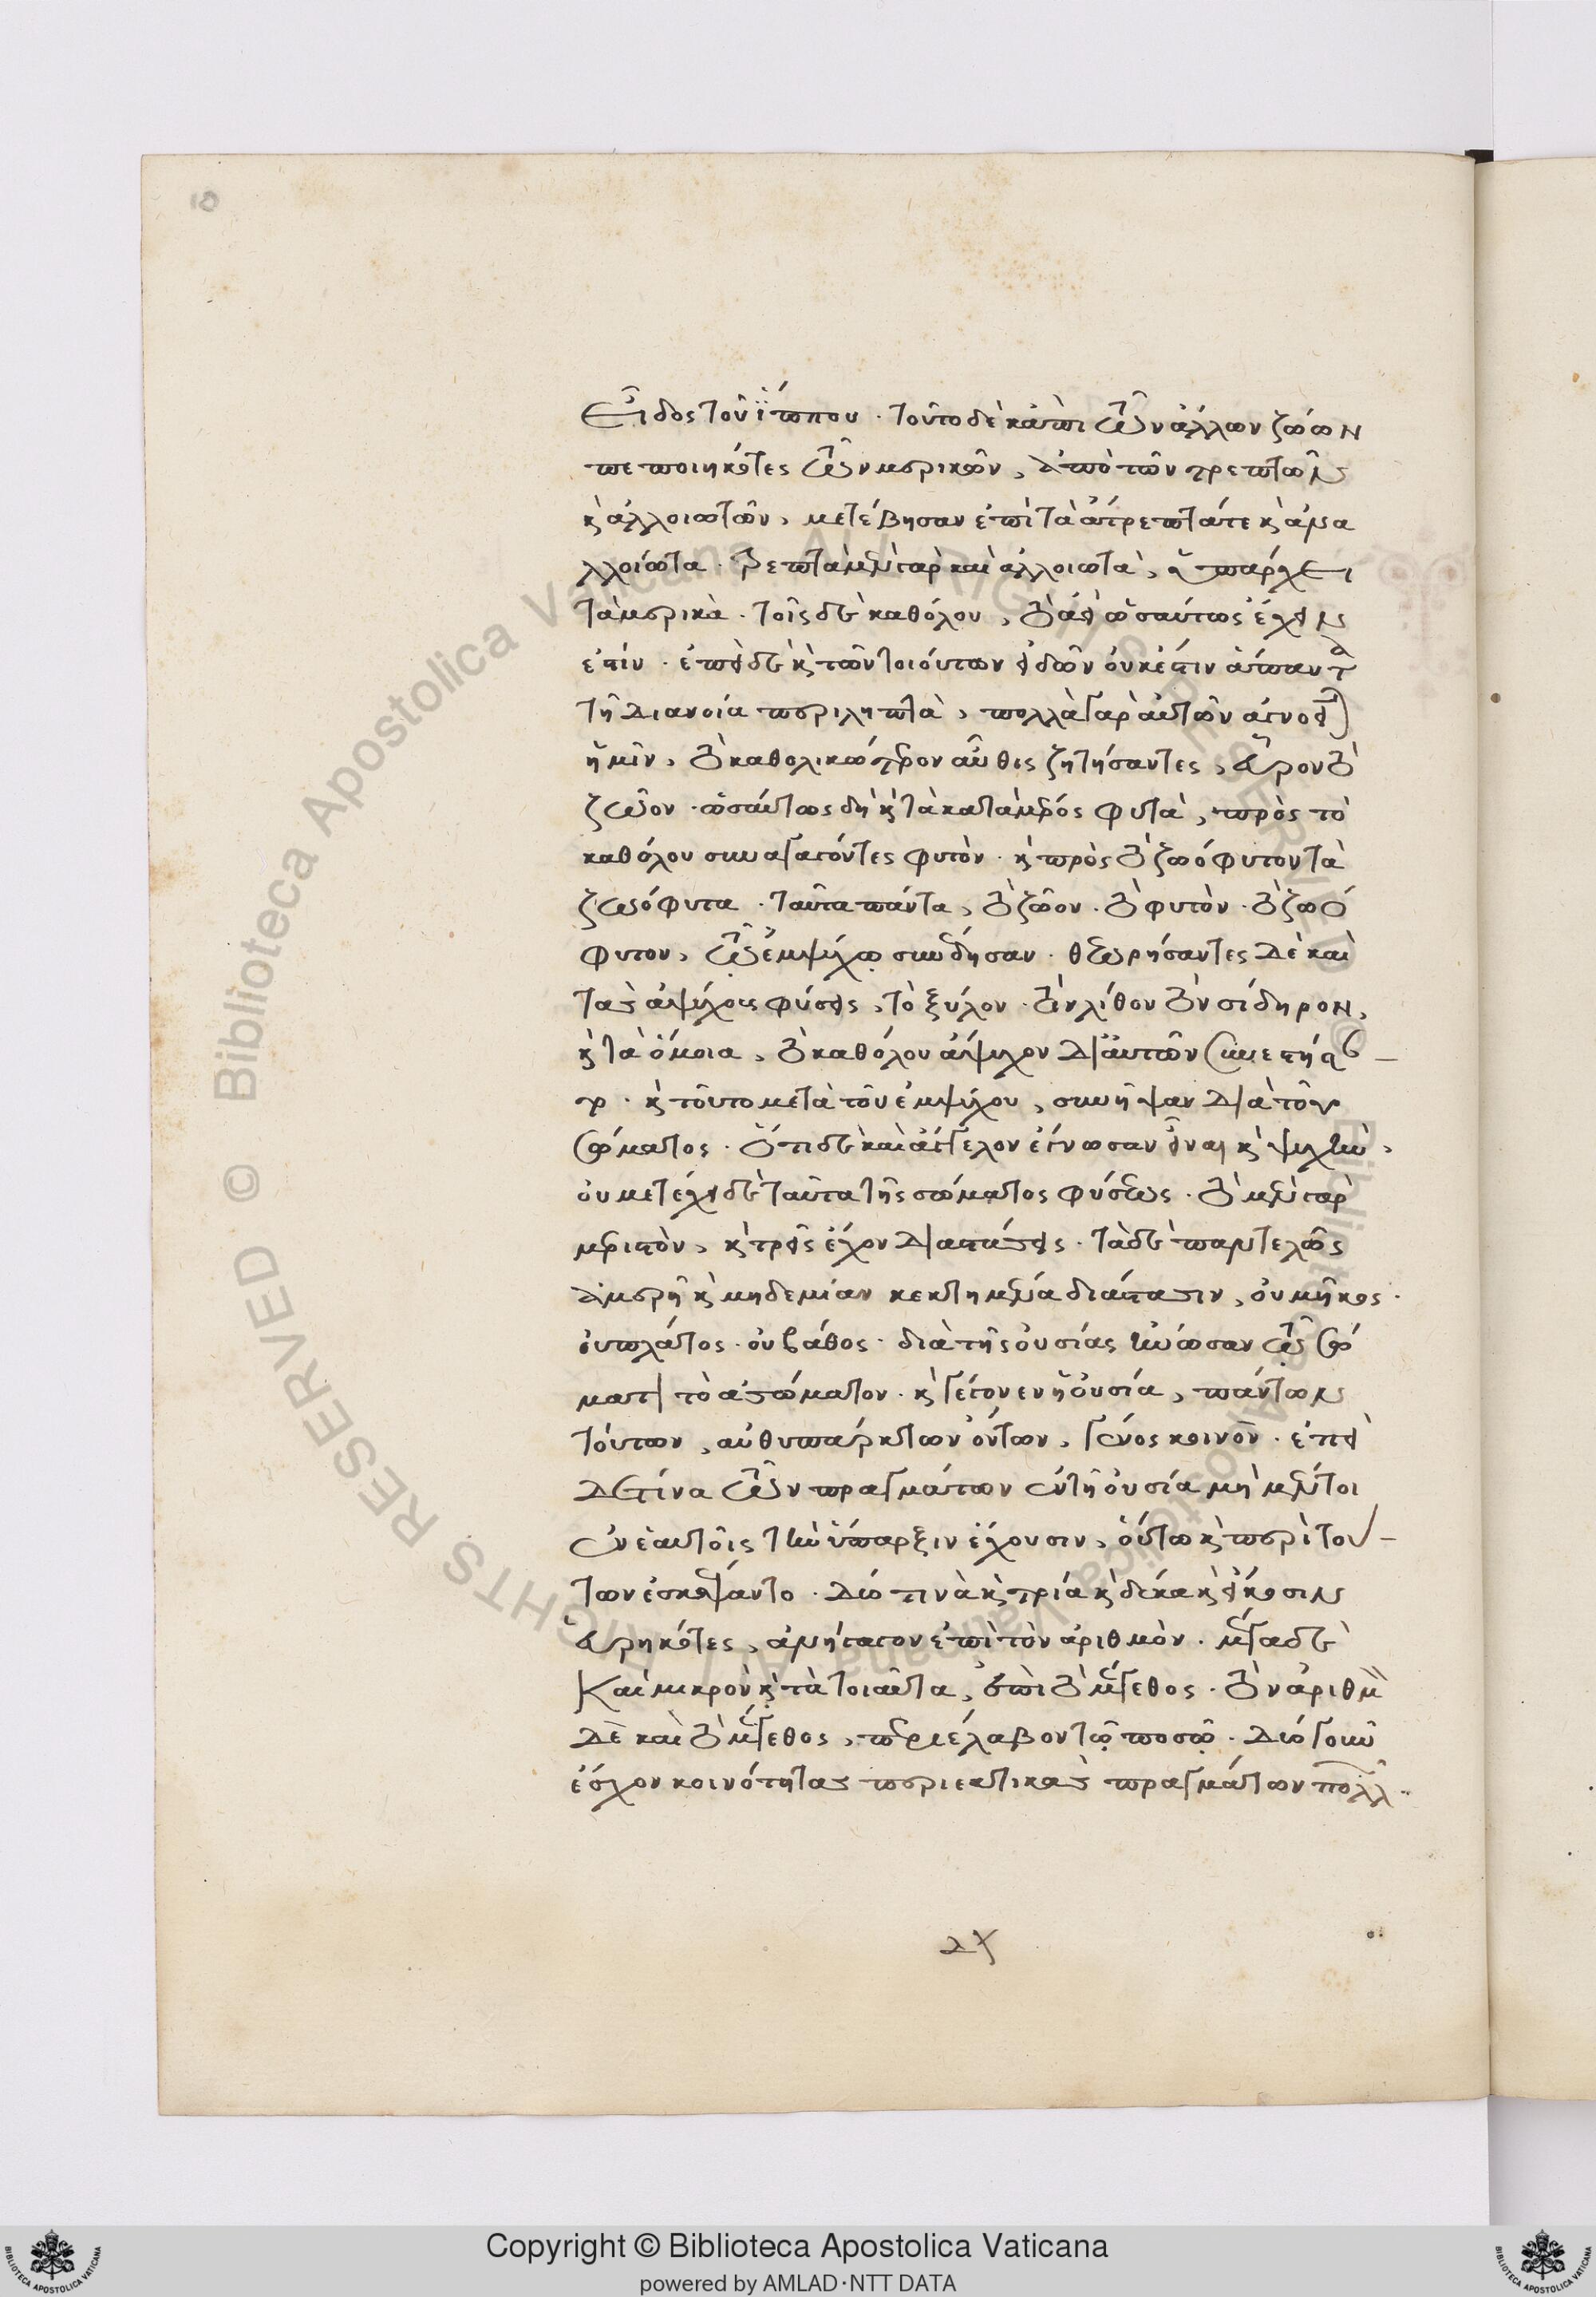 10
εἶδος τοῦ ἵππου · τοῦτο δὲ κἀπὶ τῶν ἄλλων ζώων
πεποιηκότες τῶν μερικῶν, ἀπὸ τῶν τρεπτῶν
κ ἀλλοιωτῶν, μετέβησαν ἐπὶ τὰ ἄτρεπτά τε κ ἀνα
λλοίωτα · τρεπτὰ μὲν γὰρ καὶ ἀλλοιωτὰ, ὑπάρχει
τὰ μερικὰ · τοῖς δὲ καθόλου, τὸ ἀεὶ ὡσαύτως ἔχειν
ἐστίν · ἐπεὶ δὲ κ τῶν τοιούτων εἰδῶν οὐκ ἔστιν ἅπαντα
τῇ διανοία περιληπτὰ, πολλὰ γὰρ αὐτῶν ἀγνοεῖται
ἡμῖν, τὸ καθολικώτερον αὖθις ζητήσαντες, εὗρον τὸ
ζῶον · ὡσαύτως δὴ κ τὰ κατὰ μέρος φυτὰ, πρὸς τὸ
καθόλου συναγαγόντες φυτὸν · κ πρὸς τὸ ζωόφυτον τὰ
ζωόφυτα · ταῦτα πάντα, τὸ ζῶον · τὸ φυτὸν · τὸ ζωό
φυτον, τῶ ἐμψύχῳ συνέδησαν · θεωρήσαντες δὲ καὶ
τὰς ἀψύχους φύσεις, τὸ ξύλον · τὸν λίθον τὸν σίδηρον,
κ τὰ ὅμοια, τὸ καθόλου ἄψυχον δι' αὐτῶν συνεστήσα
το · κ τοῦτο μετὰ τοῦ ἐμψύχου, συνῆψαν διὰ τοῦ
σώματος · ἔτι δὲ καὶ ἄγγελον ἔγνωσαν εἶναι κ ψυχὴν,
οὐ μετέχει δὲ ταῦτα τῆς σώματος φύσεως · τὸ μὲν γὰρ
μεριστὸν, κ τρεῖς ἔχον διαστάσεις · τὰ δὲ παντελῶς
ἀμερῆ κ μηδεμίαν κεκτημένα διάστασιν, οὐ μῆκος ·
οὐ πλάτος · οὐ βάθος · διὰ τῆς οὐσίας ἥνωσαν τῶ σώ
ματι τὸ ἀσώματον · κ γέγονεν ἡ οὐσία, πάντων
τούτων, αὐθυπάρκτων ὄντων, γένος κοινὸν · ἐπεὶ
δέ τινα τῶν πραγμάτων ἐν τῇ οὐσία μὴ μέντοι
ἐν ἑαυτοῖς τὴν ὕπαρξιν ἔχουσιν, οὕτω κ περὶ τού
των ἐσκέψαντο · δύο τινὰ κ τρία κ δέκα κ εἴκοσιν
εὑρηκότες, ἀνήγαγον ἐπὶ τὸν ἀριθμὸν · μέγα δὲ
καὶ μικρὸν κ τὰ τοιαῦτα, ἐπὶ τὸ μέγεθος · τὸν ἀριθμὸν
δὲ καὶ τὸ μέγεθος, περιέλαβον τῷ ποσῷ · δύο γοῦν
ἔσχον κοινότητας περιεκτικὰς πραγμάτων πολλῶν
Copyright © Biblioteca Apostolica Vaticana
powered by AMLAD·NTT DATA